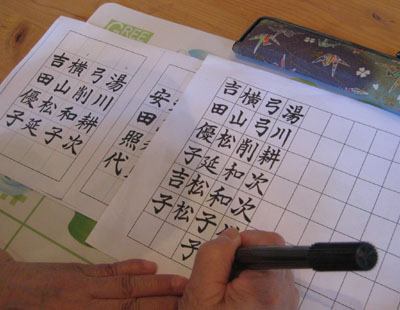 湯川耕次
弓削和子
横山松延
吉田優子
安田照代
湯川耕次次
弓弓削和和子
横山松延松松子
吉田優子吉子